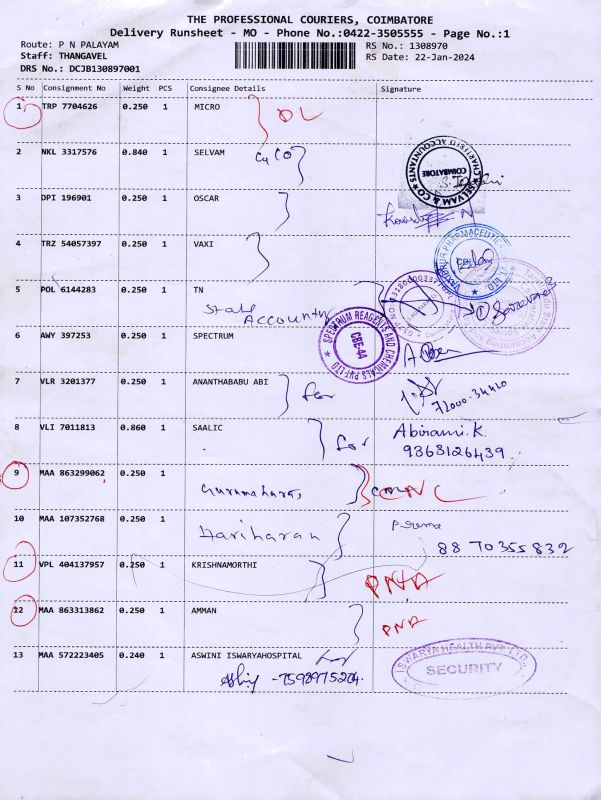 THE PROFESSIONAL COURIERS, COIMBATORE
Delivery Runsheet - MO - Phone No.:0422-3505555 - Page No.:1
Route: P N PALAYAM RS No.: 1308970
Staff: THANGAVEL RS Date: 22-Jan-2024
DRS No.: DCJB130897001
S No Consignment No Weight PCS Consignee Details Signature
1 TRP 7704626 0.250 1 MICRO DL
2 NKL 3317576 0.840 1 SELVAM
SELVAM & CO CHARTERED ACCOUNTANTS COIMBATORE
3 DPI 196901 0.250 1 OSCAR
4 TRZ 54057397 0.250 1 VAXI
5 POL 6144283 0.250 1 TN
State Accounts
6 AWY 397253 0.250 1 SPECTRUM
SPECTRUM REAGENTS AND CHEMICALS PVT LTD CBE-44
7 VLR 3201377 0.250 1 ANANTHABABU ABI for
72000-34420
8 VLI 7011813 0.860 1 SAALIC for Abirami.K.
9363126439
9 MAA 863299062 0.250 1
CNL
10 MAA 107352768 0.250 1 Hariharan Prema
88 70355832
11 VPL 404137957 0.250 1 KRISHNAMORTHI
PNA
12 MAA 863313862 0.250 1 AMMAN
PNA
13 MAA 572223405 0.240 1 ASWINI ISWARYAHOSPITAL
-7598975204
ISWARYA HEALTH PVT. LTD. SECURITY